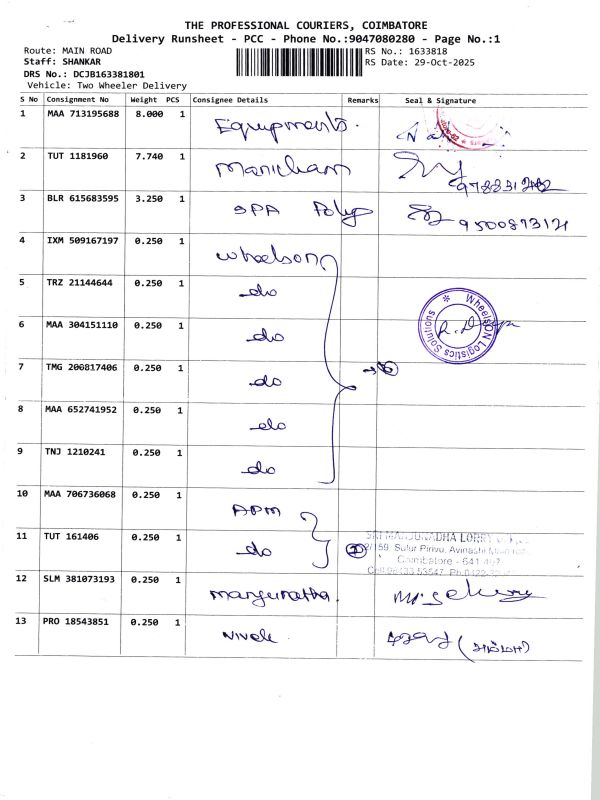 THE PROFESSIONAL COURIERS, COIMBATORE
Delivery Runsheet - PCC - Phone No.:9047080280 - Page No.:1
Route: MAIN ROAD RS No.: 1633818
Staff: SHANKAR RS Date: 29-Oct-2025
DRS No.: DCJB163381801
Vehicle: Two Wheeler Delivery
S No Consignment No Weight PCS Consignee Details Remarks Seal & Signature
1 MAA 713195688 8.000 1 Equipments.
2 TUT 1181960 7.740 1 Manickam
3 BLR 615683595 3.250 1 SPA Polyp 9500873121
4 IXM 509167197 0.250 1 wheelson
5 TRZ 21144644 0.250 1 do
6 MAA 304151110 0.250 1 do WheelsON Logistics Solutions
7 TMG 200817406 0.250 1 do → 6
8 MAA 652741952 0.250 1 do
9 TNJ 1210241 0.250 1 do
10 MAA 706736068 0.250 1 APM
11 TUT 161406 0.250 1 do 2 SRI MANJUNADHA LORRY
Sulur Pirivu, Avinashi
Coimbatore - 641 407
12 SLM 381073193 0.250 1 manjunatha.
13 PRO 18543851 0.250 1 Nivek